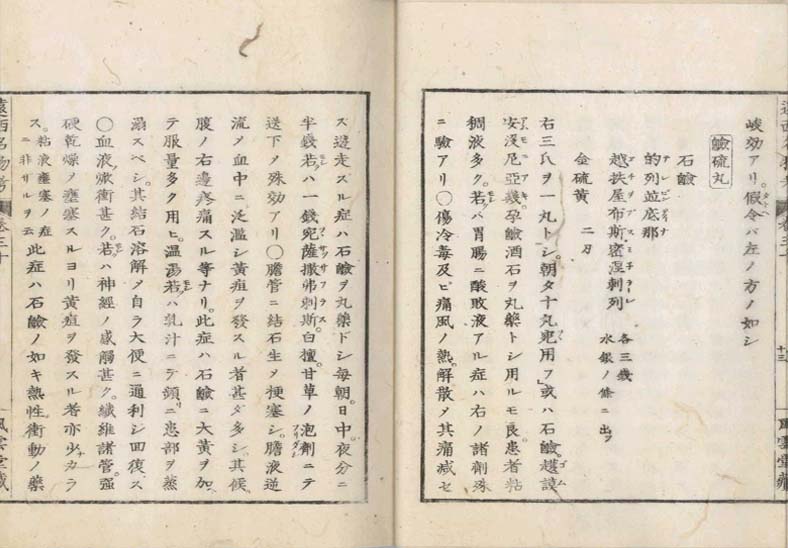 峻効アリ。假令ハ左ノ方ノ如シ
鹸硫丸
石鹸
的列並底那
越扶屋布斯密涅刺列 各三戔 水銀ノ條ニ出ヅ
金硫黄 二刃
右三氏ヲ一丸トシ。朝夕十丸宛用フ」或ハ石鹸。越謨
安没尼亞幾。孕鹸酒石ヲ丸藥トシ用ルモ良。患者粘
稠液多ク。若ハ胃腸ニ酸敗液アル症ハ右ノ諸劑殊
ニ驗アリ〇傷冷毒及ビ痛風ノ熱。解散ヲ其痛減セ
ズ遊走スル症ハ石鹸ヲ丸藥トシ毎朝。日中。夜分ニ
半錢若ハ一錢宛薩撒弗刺斯。白檀。甘草ノ泡劑ニテ
送下ノ殊効アリ〇膽管ニ結石生ヲ梗塞シ。膽液逆
流メ血中ニ泛濫シ黄疸ヲ發スル者甚ダ多シ。其候。
腹ノ右邊疼痛スル等ナリ。此症ハ石鹸ニ大黄ヲ加
テ服量多ク用ヒ。温湯若ハ乳汁ニテ頻ニ患部ヲ蒸
溺スベシ。其結石溶解メ自ラ大便ニ通利シ回復ス
〇血液。焮衝甚ク。若ハ神經ノ感觸甚ク。纎維諸管。强
硬乾燥メ壅塞スルヨリ黄疸ヲ發スル者亦少カラ
ズ。粘液壅塞ノ症ニ非サルヲ云 此症ハ石鹸ノ如キ熱性衝動ノ藥
遠西名物考 卷三十
十三
風雲堂藏